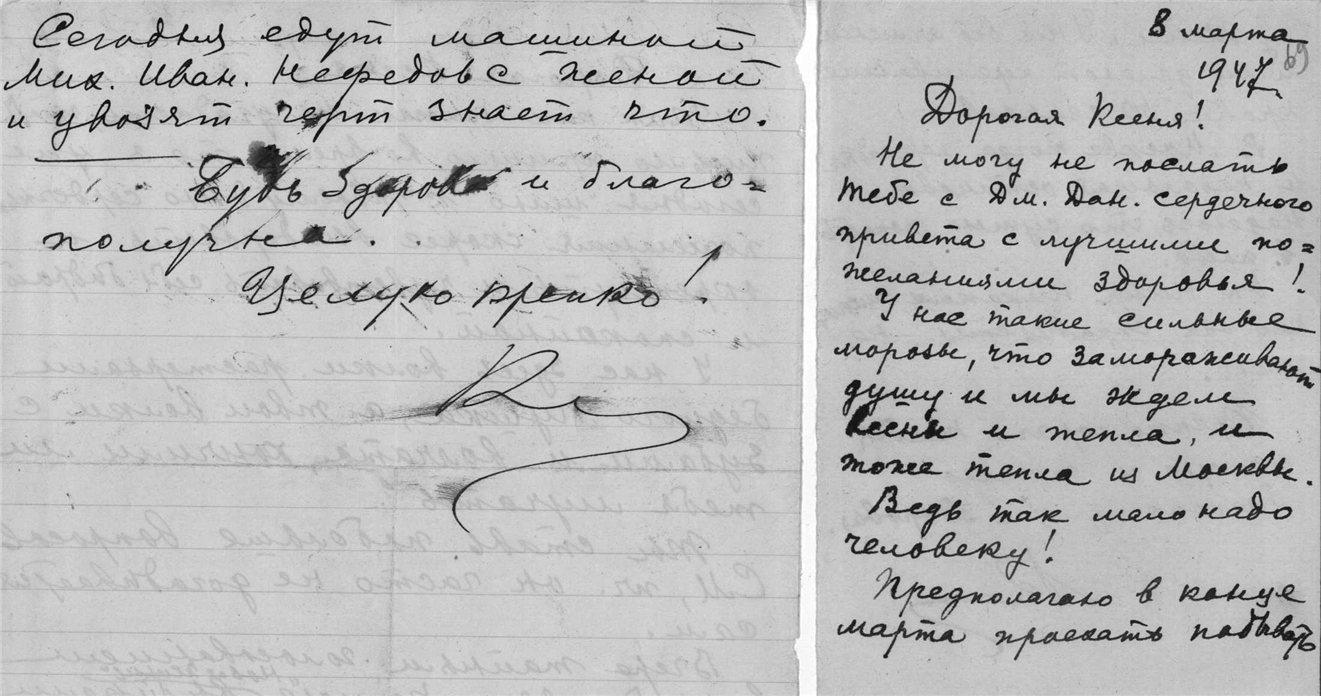 Сегодня едут машиной
Мих. Иван. Нефедов с женой
и увозят черт знает что.
Будь здорова и благо=
получна.
Целую крепко!
8 марта
1947 г.
69
Дорогая Ксеня!
Не могу не послать
тебе с Дм. Дан. сердечного
привета с лучшими по=
желаниями здоровья!
У нас такие сильные
морозы, что замораживают
душу и мы ждем
весны и тепла, и
тоже тепла из Москвы.
Ведь так мало надо
человеку!
Предполагаю в конце
марта проехать побывать